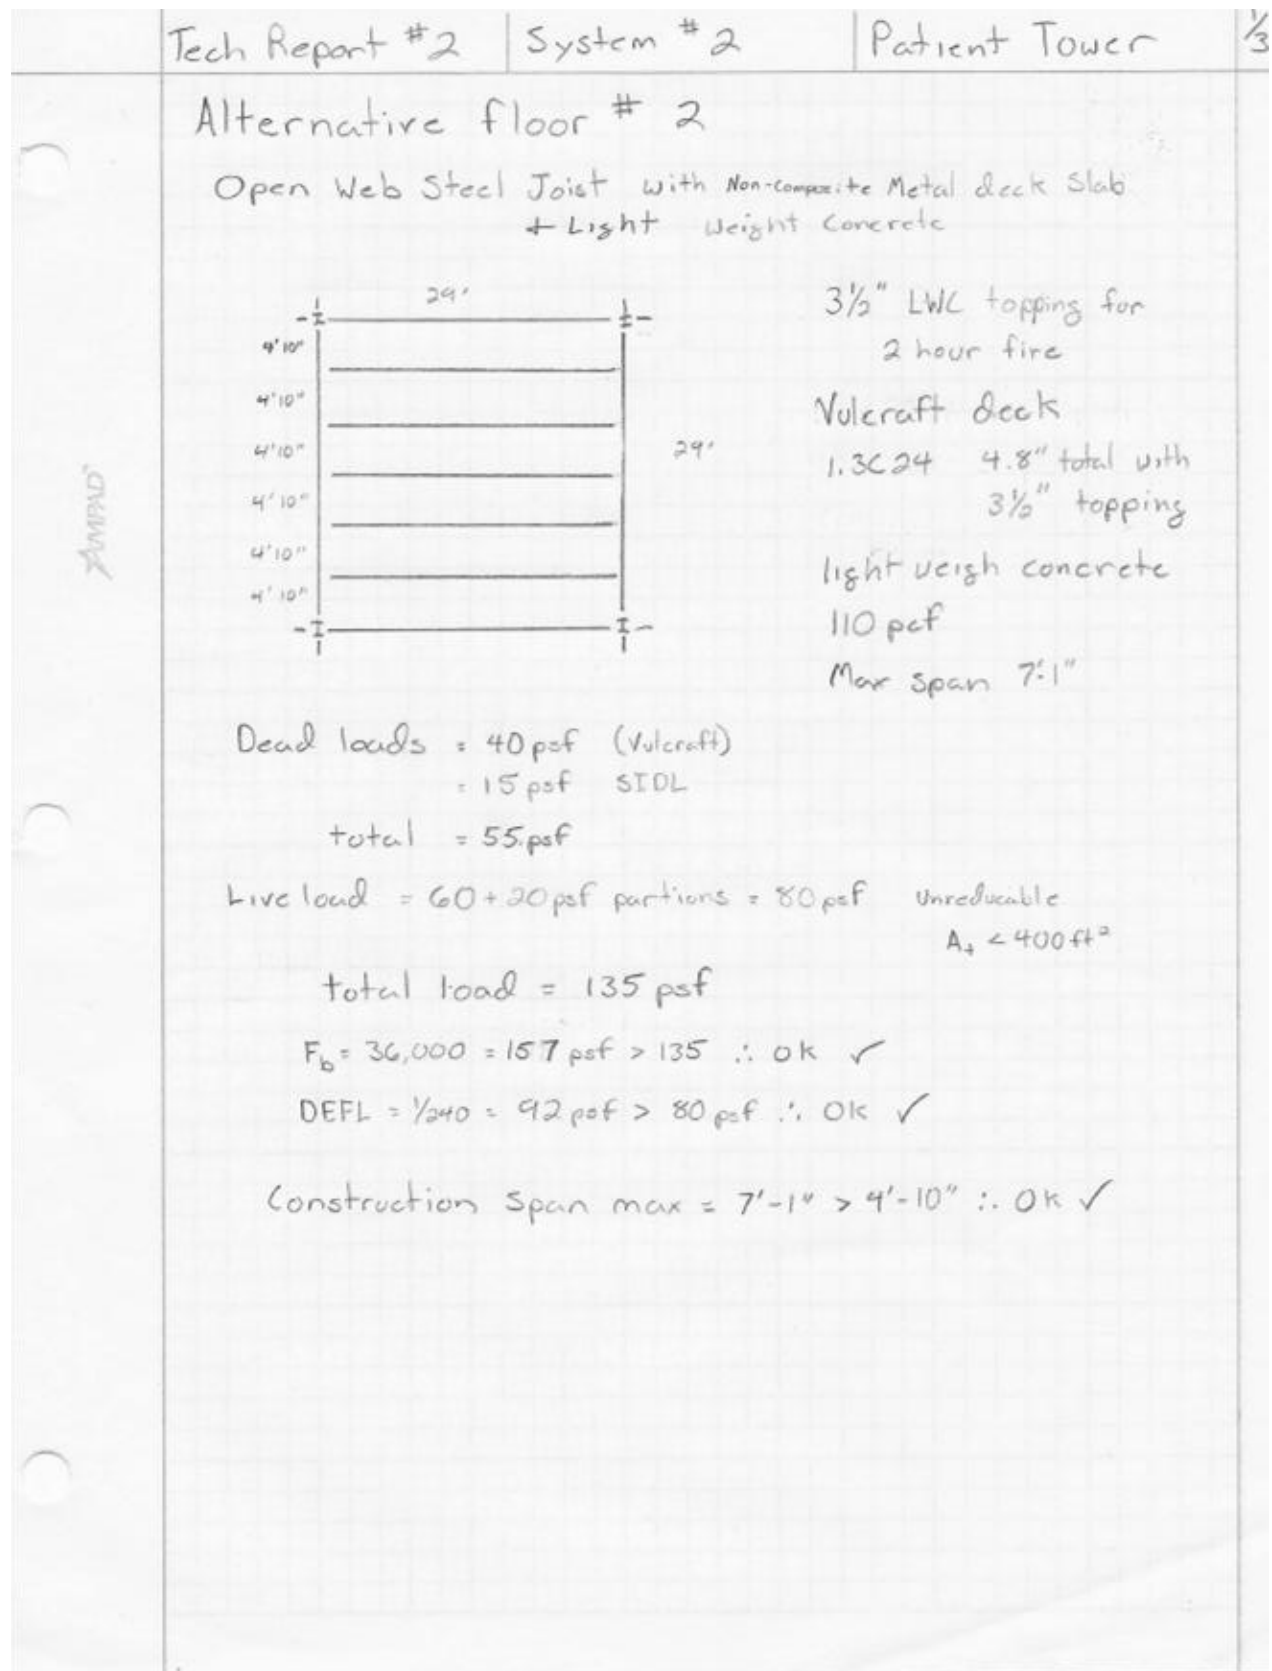 Tech Report #2
System #2
Patient Tower
1/3
Alternative floor # 2
Open Web Steel Joist with Non-Composite Metal deck Slab
+ Light Weight Concrete
29'
4'10"
4'10"
4'10"
4'10"
4'10"
4'10"
29'
3½" LWC topping for
2 hour fire
Vulcraft deck
1.3C24 4.8" total with
3½" topping
light weigh concrete
110 pcf
Max span 7'-1"
Dead loads = 40 psf (Vulcraft)
= 15 psf SIDL
total = 55 psf
Live load = 60 + 20 psf partions = 80 psf Unreducable
At < 400 ft²
total load = 135 psf
Fb = 36,000 = 157 psf > 135 ∴ ok ✓
DEFL = 1/240 = 92 psf > 80 psf ∴ OK ✓
Construction Span max = 7'-1" > 4'-10" ∴ OK ✓
AMPAD